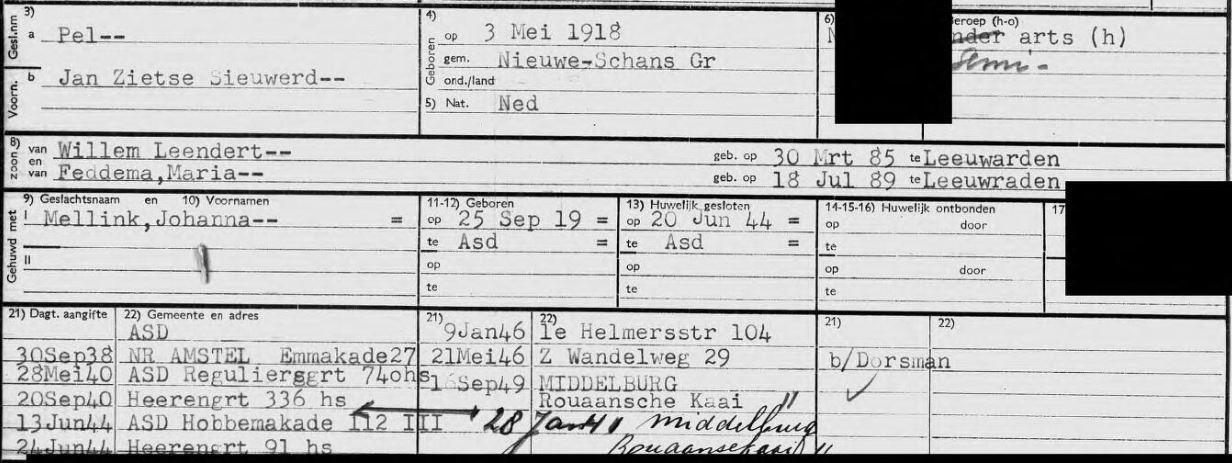 3) Gesl.nm a Pel--
4) Geboren op 3 Mei 1918
6) Beroep (h-o)
arts (h)
semi-
gem. Nieuwe-Schans Gr
Voorn. b Jan Zietse Sieuwerd--
ond./land
5) Nat. Ned
8) zoon van Willem Leendert-- geb. op 30 Mrt 85 te Leeuwarden
en van Feddema,Maria-- geb. op 18 Jul 89 te Leeuwraden
9) Geslachtsnaam en 10) Voornamen
11-12) Geboren
13) Huwelijk gesloten
14-15-16) Huwelijk ontbonden
17
Gehuwd met I Mellink,Johanna-- = op 25 Sep 19 = op 20 Jun 44 = op door
te Asd = te Asd = te
II op op op door
te te te
21) Dagt. aangifte 22) Gemeente en adres
ASD
30Sep38 NR AMSTEL Emmakade27
28Mei40 ASD Reguliersgrt 74ohs
20Sep40 Heerengrt 336 hs
13Jun44 ASD Hobbemakade 112 III
24Jun44 Heerengrt 91 hs
21) 22)
9Jan46 1e Helmersstr 104
21Mei46 Z Wandelweg 29
Sep49 MIDDELBURG
Rouaansche Kaai "
28 Jan41 middelburg
Rouaansekaai 11
21) 22)
b/Dorsman